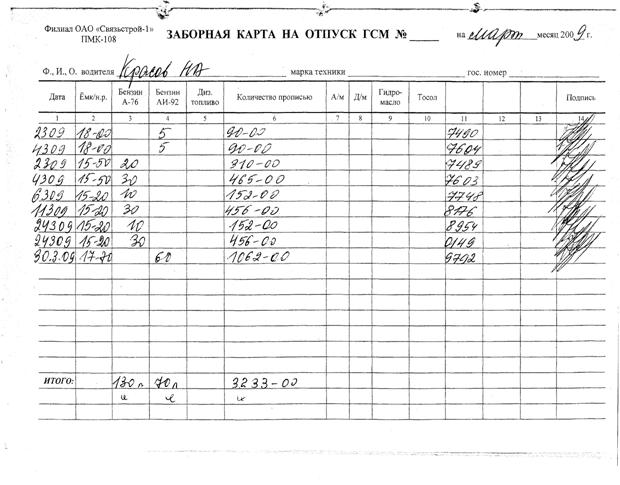 Филиал ОАО «Связьстрой-1»
ПМК-108
ЗАБОРНАЯ КАРТА НА ОТПУСК ГСМ № на март месяц 2009 г.
Ф., И., О. водителя Красов НА марка техники гос. номер
Дата Ёмк/н.р. Бензин А-76 Бензин АИ-92 Диз. топливо Количество прописью А/м Д/м Гидро-масло Тосол Подпись
1 2 3 4 5 6 7 8 9 10 11 12 13 14
2309 18-00 5 90-00 7490
4309 18-00 5 90-00 7604
2309 15-50 20 310-00 7489
4309 15-50 30 465-00 7603
6309 15-20 10 152-00 7748
11309 15-20 30 456-00 8176
24309 15-20 10 152-00 8954
24309 15-20 30 456-00 0149
30.3.09 17-70 60 1062-00 9792
ИТОГО: 130 л 70 л 3233-00